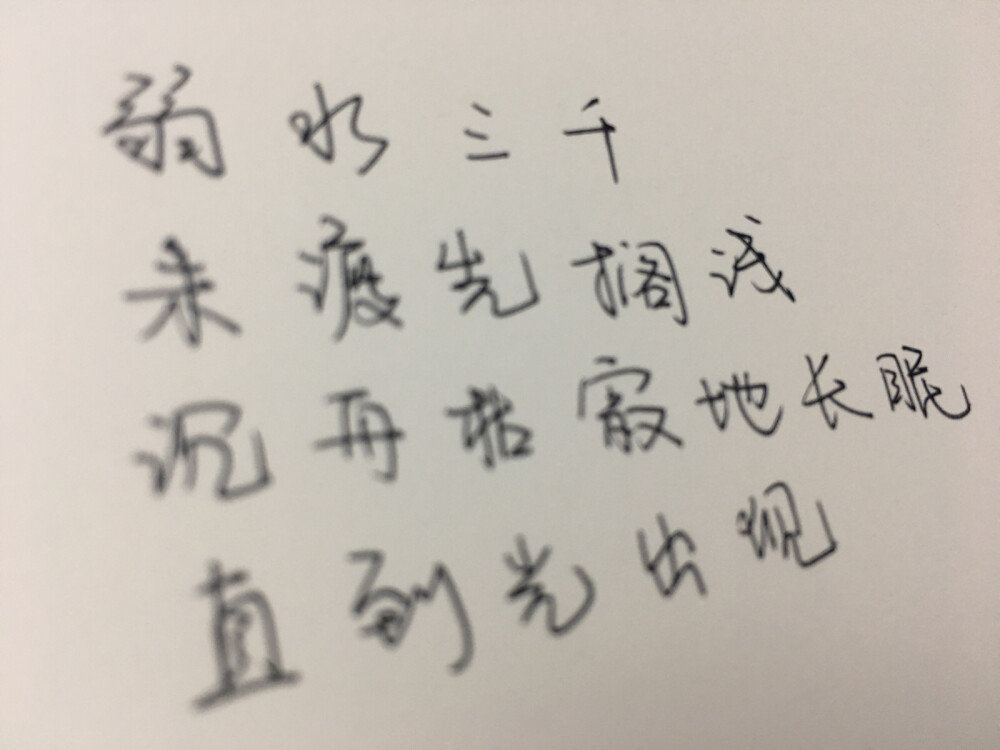 弱水三千
未渡先搁浅
沉舟枯寂地长眠
直到光出现